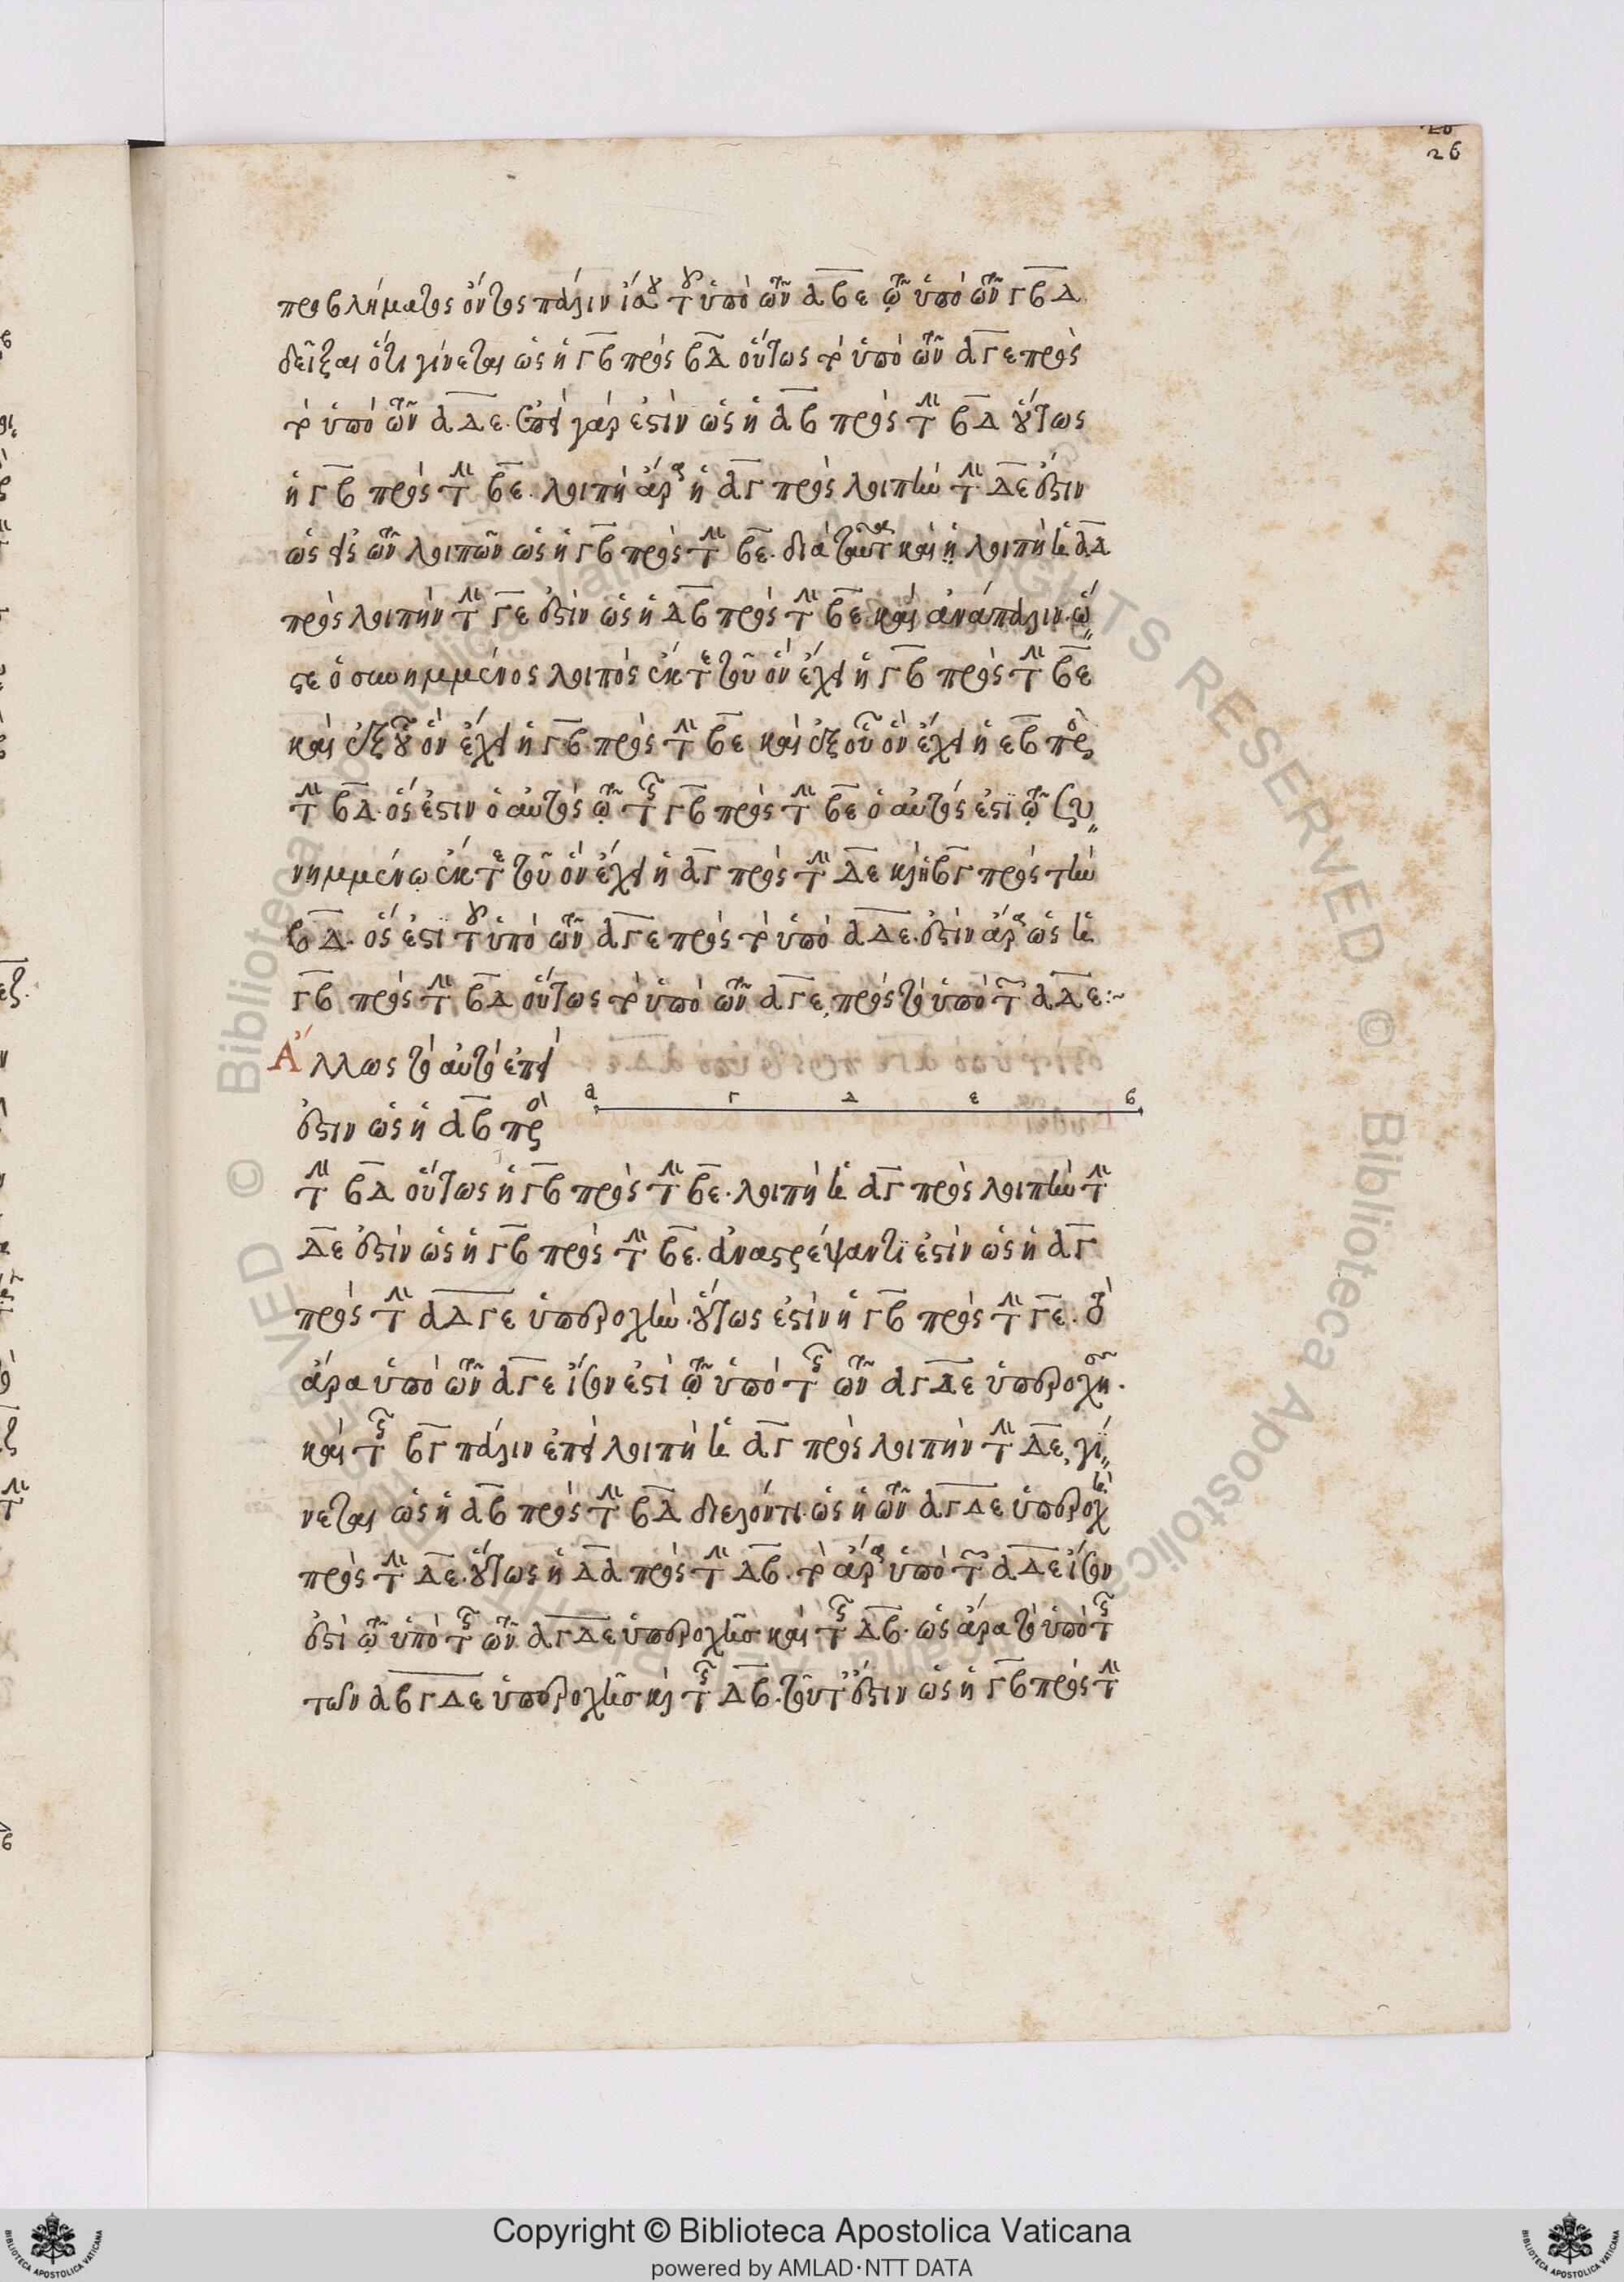 26
προβλήματος ὄντος πάλιν ἴσου τοῦ ὑπὸ τῶν ΑΒΕ τῷ ὑπὸ τῶν ΓΒΔ
δεῖξαι ὅτι γίνεται ὡς ἡ ΓΒ πρὸς ΒΔ οὕτως τὸ ὑπὸ τῶν ΑΓΕ πρὸς
τὸ ὑπὸ τῶν ΑΔΕ. ἐπεὶ γάρ ἐστιν ὡς ἡ ΑΒ πρὸς τὴν ΒΔ οὕτως
ἡ ΓΒ πρὸς τὴν ΒΕ. λοιπὴ ἄρα ἡ ΑΓ πρὸς λοιπὴν τὴν ΔΕ ἐστιν
ὡς τῶν λοιπῶν ὡς ἡ ΓΒ πρὸς τὴν ΒΕ. διὰ ταῦτα καὶ ἡ λοιπὴ ἡ ΑΔ
πρὸς λοιπὴν τὴν ΓΕ ἐστὶν ὡς ἡ ΔΒ πρὸς τὴν ΒΕ. καὶ ἀνάπαλιν. ὥ
στε ὁ συνημμένος λοιπὸς ἐκ τε τοῦ ὃν ἔχει ἡ ΓΒ πρὸς τὴν ΒΕ
καὶ ἐξ οὗ ὃν ἔχει ἡ ΓΒ πρὸς τὴν ΒΕ καὶ ἐξ οὗ ὃν ἔχει ἡ ΕΒ πρὸς
τὴν ΒΔ. ὅς ἐστιν ὁ αὐτὸς τῷ τῆς ΓΒ πρὸς τὴν ΒΕ ὁ αὐτός ἐστι τῷ συ
νημμένῳ ἐκ τε τοῦ ὃν ἔχει ἡ ΑΓ πρὸς τὴν ΔΕ καὶ ἡ ΒΓ πρὸς τὴν
ΒΔ. ὅς ἐστι τοῦ ὑπὸ τῶν ΑΓΕ πρὸς τὸ ὑπὸ ΑΔΕ. ἐστὶν ἄρα ὡς ἡ
ΓΒ πρὸς τὴν ΒΔ οὕτως τὸ ὑπὸ τῶν ΑΓΕ πρὸς τὸ ὑπὸ τῶν ΑΔΕ:~
Ἄλλως τὸ αὐτὸ ἐπεὶ
α Γ Δ ε β
ἐστιν ὡς ἡ ΑΒ πρὸς
τὴν ΒΔ οὕτως ἡ ΓΒ πρὸς τὴν ΒΕ. λοιπὴ ἡ ΑΓ πρὸς λοιπὴν τὴν
ΔΕ ἐστὶν ὡς ἡ ΓΒ πρὸς τὴν ΒΕ. ἀναστρέψαντί ἐστιν ὡς ἡ ΑΓ
πρὸς τὴν ΑΔΓΕ ὑπεροχήν. οὕτως ἐστὶν ἡ ΓΒ πρὸς τὴν ΓΕ. τὸ
ἄρα ὑπὸ τῶν ΑΓΕ ἴσον ἐστὶ τῷ ὑπὸ τῆς τῶν ΑΓΔΕ ὑπεροχῆς.
καὶ τῆς ΒΓ πάλιν ἐπεὶ λοιπὴ ἡ ΑΓ πρὸς λοιπὴν τὴν ΔΕ, γί
νεται ὡς ἡ ΑΒ πρὸς τὴν ΒΔ διελόντι. ὡς ἡ τῶν ΑΓΔΕ ὑπεροχὴ
πρὸς τὴν ΔΕ. οὕτως ἡ ΔΑ πρὸς τὴν ΔΒ. τὸ ἄρα ὑπὸ τῶν ΑΔΕ ἴσον
ἐστὶ τῷ ὑπὸ τῆς τῶν ΑΓΔΕ ὑπεροχῆς καὶ τῆς ΔΒ. ὡς ἄρα τὸ ὑπὸ τῆς
τῶν ΑΒΓΔΕ ὑπεροχῆς καὶ τῆς ΔΒ. τουτέστιν ὡς ἡ ΓΒ πρὸς τὴν
Copyright © Biblioteca Apostolica Vaticana
powered by AMLAD·NTT DATA